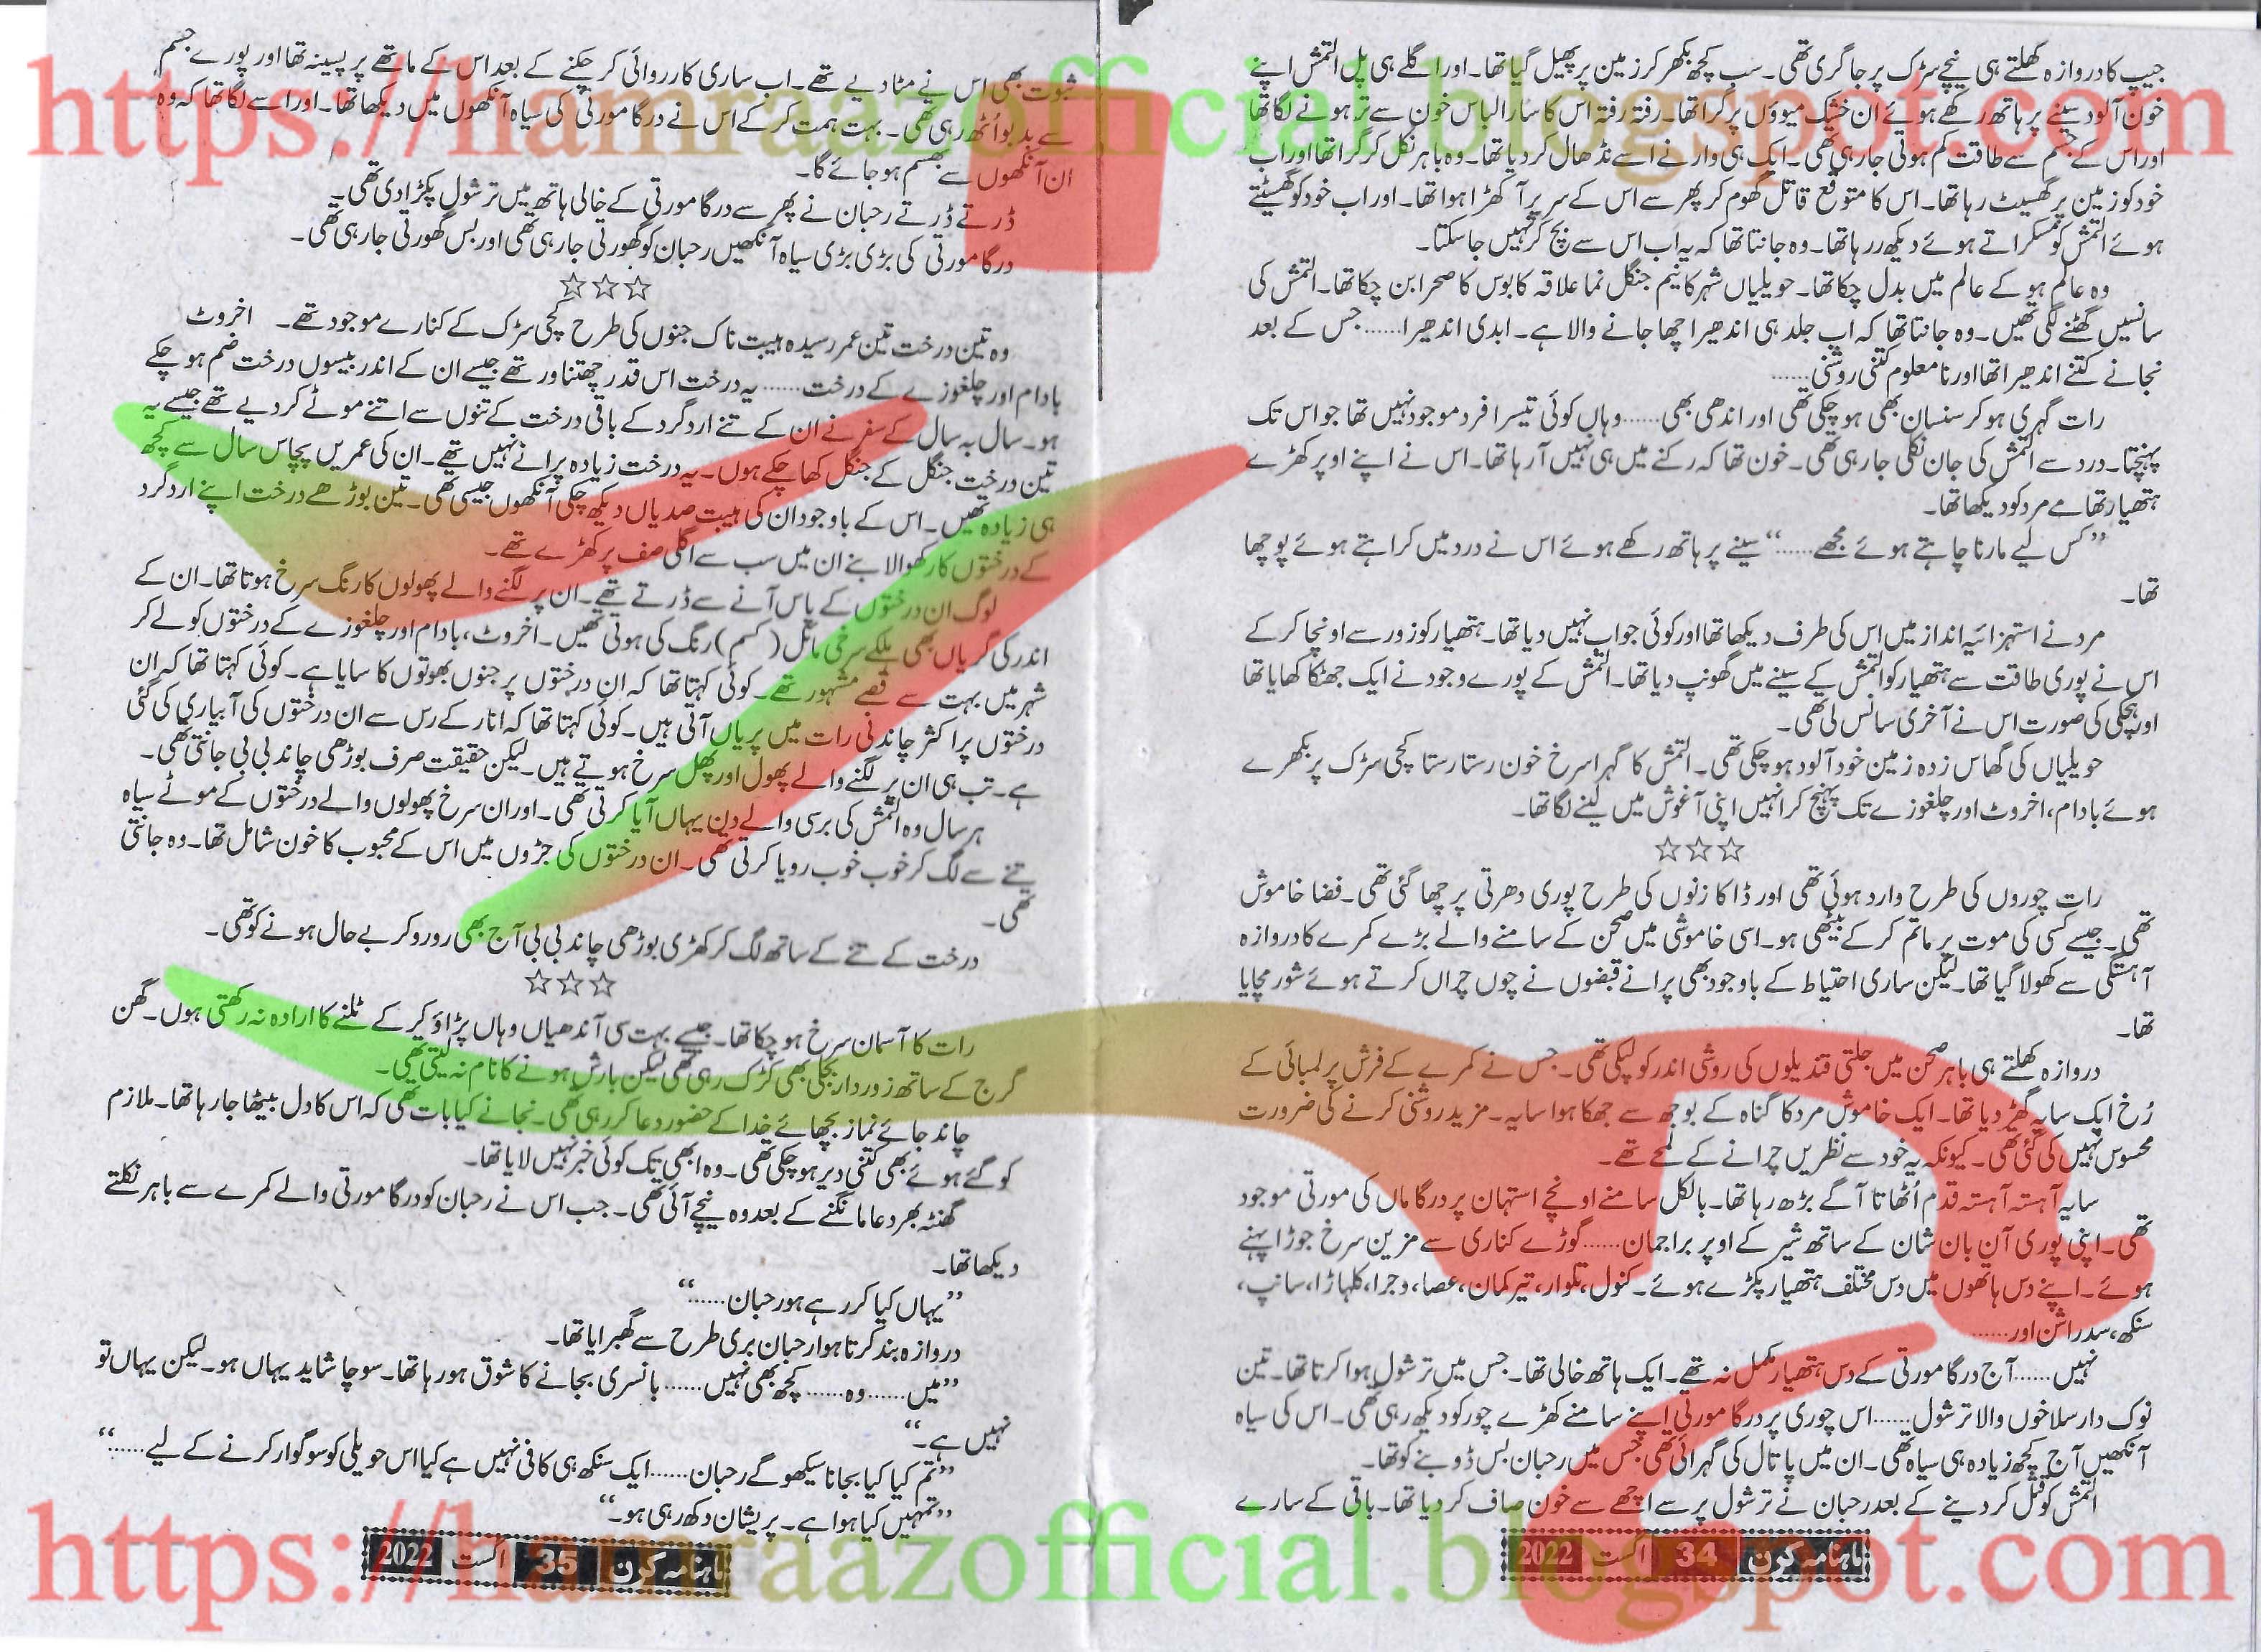 https://hamraazofficial.blogspot.com
جیپ کا دروازہ کھلتے ہی نیچے سڑک پر جا گری تھی۔ سب کچھ بکھر کر زمین پر پھیل گیا تھا۔ اور اگلے ہی پل التمش اپنے
خون آلود سینے پر ہاتھ رکھے ہوئے ان خشک میوؤں پر گرا تھا۔ رفتہ رفتہ اس کا سارا لباس خون سے تر ہونے لگا تھا
اور اس کے جسم سے طاقت کم ہوتی جا رہی تھی۔ ایک ہی وار نے اسے نڈھال کر دیا تھا۔ وہ باہر نکل کر گرا تھا اور اب
خود کو زمین پر گھسیٹ رہا تھا۔ اس کا متوقع قاتل گھوم کر پھر سے اس کے سر پر آ کھڑا ہوا تھا۔ اور اب خود کو گھسیٹتے
ہوئے التمش کو مسکراتے ہوئے دیکھ رہا تھا۔ وہ جانتا تھا کہ یہ اب اس سے بچ کر نہیں جا سکتا۔
وہ عالم ہو کے عالم میں بدل چکا تھا۔ حویلیاں شہر کا نیم جنگل نما علاقہ کابوس کا صحرا بن چکا تھا۔ التمش کی
سانسیں گھٹنے لگی تھیں۔ وہ جانتا تھا کہ اب جلد ہی اندھیرا چھا جانے والا ہے۔ ابدی اندھیرا...... جس کے بعد
نجانے کتنے اندھیرا تھا اور نا معلوم کتنی روشنی......
رات گہری ہو کر سنسان بھی ہو چکی تھی اور اندھی بھی...... وہاں کوئی تیسرا فرد موجود نہیں تھا جو اس تک
پہنچتا۔ درد سے التمش کی جان نکلی جا رہی تھی۔ خون تھا کہ رکنے میں ہی نہیں آ رہا تھا۔ اس نے اپنے اوپر کھڑے
ہتھیار تھامے مرد کو دیکھا تھا۔
”کس لیے مارنا چاہتے ہوئے مجھے......“ سینے پر ہاتھ رکھے ہوئے اس نے درد میں کراہتے ہوئے پوچھا
تھا۔
مرد نے استہزائیہ انداز میں اس کی طرف دیکھا تھا اور کوئی جواب نہیں دیا تھا۔ ہتھیار کو زور سے اونچا کر کے
اس نے پوری طاقت سے ہتھیار کو التمش کے سینے میں گھونپ دیا تھا۔ التمش کے پورے وجود نے ایک جھٹکا کھایا تھا
اور ہچکی کی صورت اس نے آخری سانس لی تھی۔
حویلیاں کی گھاس زدہ زمین خود آلود ہو چکی تھی۔ التمش کا گہرا سرخ خون رستا رستا کچی سڑک پر بکھرے
ہوئے بادام، اخروٹ اور چلغوزے تک پہنچ کر انہیں اپنی آغوش میں لینے لگا تھا۔
☆☆☆
رات چوروں کی طرح وارد ہوئی تھی اور ڈاکا زنوں کی طرح پوری دھرتی پر چھا گئی تھی۔ فضا خاموش
تھی۔ جیسے کسی کی موت پر ماتم کر کے بیٹھی ہو۔ اسی خاموشی میں صحن کے سامنے والے بڑے کمرے کا دروازہ
آہستگی سے کھولا گیا تھا۔ لیکن ساری احتیاط کے باوجود بھی پرانے قبضوں نے چوں چراں کرتے ہوئے شور مچایا
تھا۔
دروازہ کھلتے ہی باہر صحن میں جلتی قندیلوں کی روشنی اندر کو لپکی تھی۔ جس نے کمرے کے فرش پر لمبائی کے
رُخ ایک سایہ گھڑ دیا تھا۔ ایک خاموش مرد کا گناہ کے بوجھ سے جھکا ہوا سایہ۔ مزید روشنی کرنے کی ضرورت
محسوس نہیں کی گئی تھی۔ کیونکہ یہ خود سے نظریں چرانے کے لمحے تھے۔
سایہ آہستہ آہستہ قدم اُٹھاتا آگے بڑھ رہا تھا۔ بالکل سامنے اونچے استھان پر درگا ماں کی مورتی موجود
تھی۔ اپنی پوری آن بان شان کے ساتھ شیر کے اوپر براجمان...... گوڑے کناری سے مزین سرخ جوڑا پہنے
ہوئے۔ اپنے دس ہاتھوں میں دس مختلف ہتھیار پکڑے ہوئے۔ کنول، تلوار، تیر کمان، عصا، وجرا، کلہاڑا، سانپ،
سنکھ، سدراشن اور......
نہیں...... آج درگا مورتی کے دس ہتھیار مکمل نہ تھے۔ ایک ہاتھ خالی تھا۔ جس میں ترشول ہوا کرتا تھا۔ تین
نوک دار سلاخوں والا ترشول...... اس چوری پر درگا مورتی اپنے سامنے کھڑے چور کو دیکھ رہی تھی۔ اس کی سیاہ
آنکھیں آج کچھ زیادہ ہی سیاہ تھی۔ ان میں پاتال کی گہرائی تھی جس میں رحبان بس ڈوبنے کو تھا۔
التمش کو قتل کر دینے کے بعد رحبان نے ترشول پر سے اچھے سے خون صاف کر دیا تھا۔ باقی کے سارے
ماہنامہ کرن 34 اگست 2022
ثبوت بھی اس نے مٹا دیے تھے۔ اب ساری کارروائی کر چکنے کے بعد اس کے ماتھے پر پسینہ تھا اور پورے جسم
سے بدبو اُٹھ رہی تھی۔ بہت ہمت کر کے اس نے درگا مورتی کی سیاہ آنکھوں میں دیکھا تھا۔ اور اسے لگا تھا کہ وہ
ان آنکھوں سے بھسم ہو جائے گا۔
ڈرتے ڈرتے رحبان نے پھر سے درگا مورتی کے خالی ہاتھ میں ترشول پکڑا دی تھی۔
درگا مورتی کی بڑی بڑی سیاہ آنکھیں رحبان کو گھورتی جا رہی تھی اور بس گھورتی جا رہی تھی۔
☆☆☆
وہ تین درخت تین عمر رسیدہ ہیبت ناک جنوں کی طرح کچی سڑک کے کنارے موجود تھے۔ اخروٹ
بادام اور چلغوزے کے درخت...... یہ درخت اس قدر چھتناور تھے جیسے ان کے اندر بیسوں درخت ضم ہو چکے
ہو۔ سال بہ سال کے سفر نے ان کے تنے ارد گرد کے باقی درخت کے تنوں سے اتنے موٹے کر دیے تھے جیسے یہ
تین درخت جنگل کے جنگل کھا چکے ہوں۔ یہ درخت زیادہ پرانے نہیں تھے۔ ان کی عمریں پچاس سال سے کچھ
ہی زیادہ تھیں۔ اس کے باوجود ان کی ہیبت صدیاں دیکھ چکی آنکھوں جیسی تھی۔ تین بوڑھے درخت اپنے ارد گرد
کے درختوں کا رکھوالا بنے ان میں سب سے اگلی صف پر کھڑے تھے۔
لوگ ان درختوں کے پاس آنے سے ڈرتے تھے۔ ان پر لگنے والے پھولوں کا رنگ سرخ ہوتا تھا۔ ان کے
اندر کی گریاں بھی ہلکے سرخی مائل (کسم) رنگ کی ہوتی تھیں۔ اخروٹ، بادام اور چلغوزے کے درختوں کو لے کر
شہر میں بہت سے قصے مشہور تھے۔ کوئی کہتا تھا کہ ان درختوں پر جنوں بھوتوں کا سایا ہے۔ کوئی کہتا تھا کہ ان
درختوں پر اکثر چاندنی رات میں پریاں آتی ہیں۔ کوئی کہتا تھا کہ انار کے رس سے ان درختوں کی آبیاری کی گئی
ہے۔ تب ہی ان پر لگنے والے پھول اور پھل سرخ ہوتے ہیں۔ لیکن حقیقت صرف بوڑھی چاند بی بی جانتی تھی۔
ہر سال وہ التمش کی برسی والے دن یہاں آیا کرتی تھی۔ اور ان سرخ پھولوں والے درختوں کے موٹے سیاہ
تنے سے لگ کر خوب خوب رویا کرتی تھی۔ ان درختوں کی جڑوں میں اس کے محبوب کا خون شامل تھا۔ وہ جانتی
تھی۔
درخت کے تنے کے ساتھ لگ کر کھڑی بوڑھی چاند بی بی آج بھی رو رو کر بے حال ہونے کو تھی۔
☆☆☆
رات کا آسمان سرخ ہو چکا تھا۔ جیسے بہت سی آندھیاں وہاں پڑاؤ کر کے ٹلنے کا ارادہ نہ رکھتی ہوں۔ گھن
گرج کے ساتھ زوردار بجلی بھی کڑک رہی تھی لیکن بارش ہونے کا نام نہ لیتی تھی۔
چاند جائے نماز بچھائے خدا کے حضور دعا کر رہی تھی۔ نجانے کیا بات تھی کہ اس کا دل بیٹھا جا رہا تھا۔ ملازم
کو گئے ہوئے بھی کتنی دیر ہو چکی تھی۔ وہ ابھی تک کوئی خبر نہیں لایا تھا۔
گھنٹہ بھر دعا مانگنے کے بعد وہ نیچے آئی تھی۔ جب اس نے رحبان کو درگا مورتی والے کمرے سے باہر نکلتے
دیکھا تھا۔
”یہاں کیا کر رہے ہو رحبان......“
دروازہ بند کرتا ہوا رحبان بری طرح سے گھبرایا تھا۔
”میں...... وہ...... کچھ بھی نہیں...... بانسری بجانے کا شوق ہو رہا تھا۔ سوچا شاید یہاں ہو۔ لیکن یہاں تو
نہیں ہے۔“
”تم کیا کیا بجانا سیکھو گے رحبان...... ایک سنکھ ہی کافی نہیں ہے کیا اس حویلی کو سوگوار کرنے کے لیے......“
”تمہیں کیا ہوا ہے۔ پریشان دکھ رہی ہو۔“
ماہنامہ کرن 35 اگست 2022
https://hamraazofficial.blogspot.com